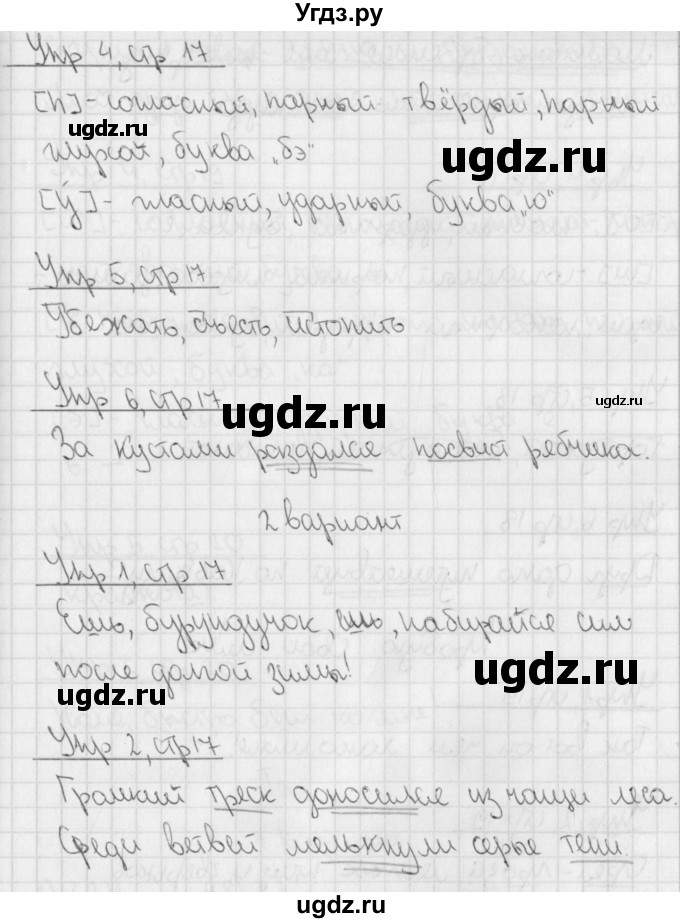 Угдз.ру
Упр 4, стр 17
[п]-согласный, парный твёрдый, парный
ugdz.ru
ugdz.ru
глухой, буква „бэ"
[у́]-гласный, ударный, буква „ю"
Упр 5, стр 17
Убежать, съесть, истопить
Упр 6, стр 17
ugdz.ru
ugdz.ru
За кустами раздался посвист рябчика.
2 вариант
Упр 1, стр 17
Ешь, бурундучок, ешь, набирайся сил
после долгой зимы!
ugdz.ru
ugdz.ru
Упр 2, стр 17
Громкий треск доносился из чащи леса.
Среди ветвей мелькнули серые тени.
ugdz.ru
ugdz.ru